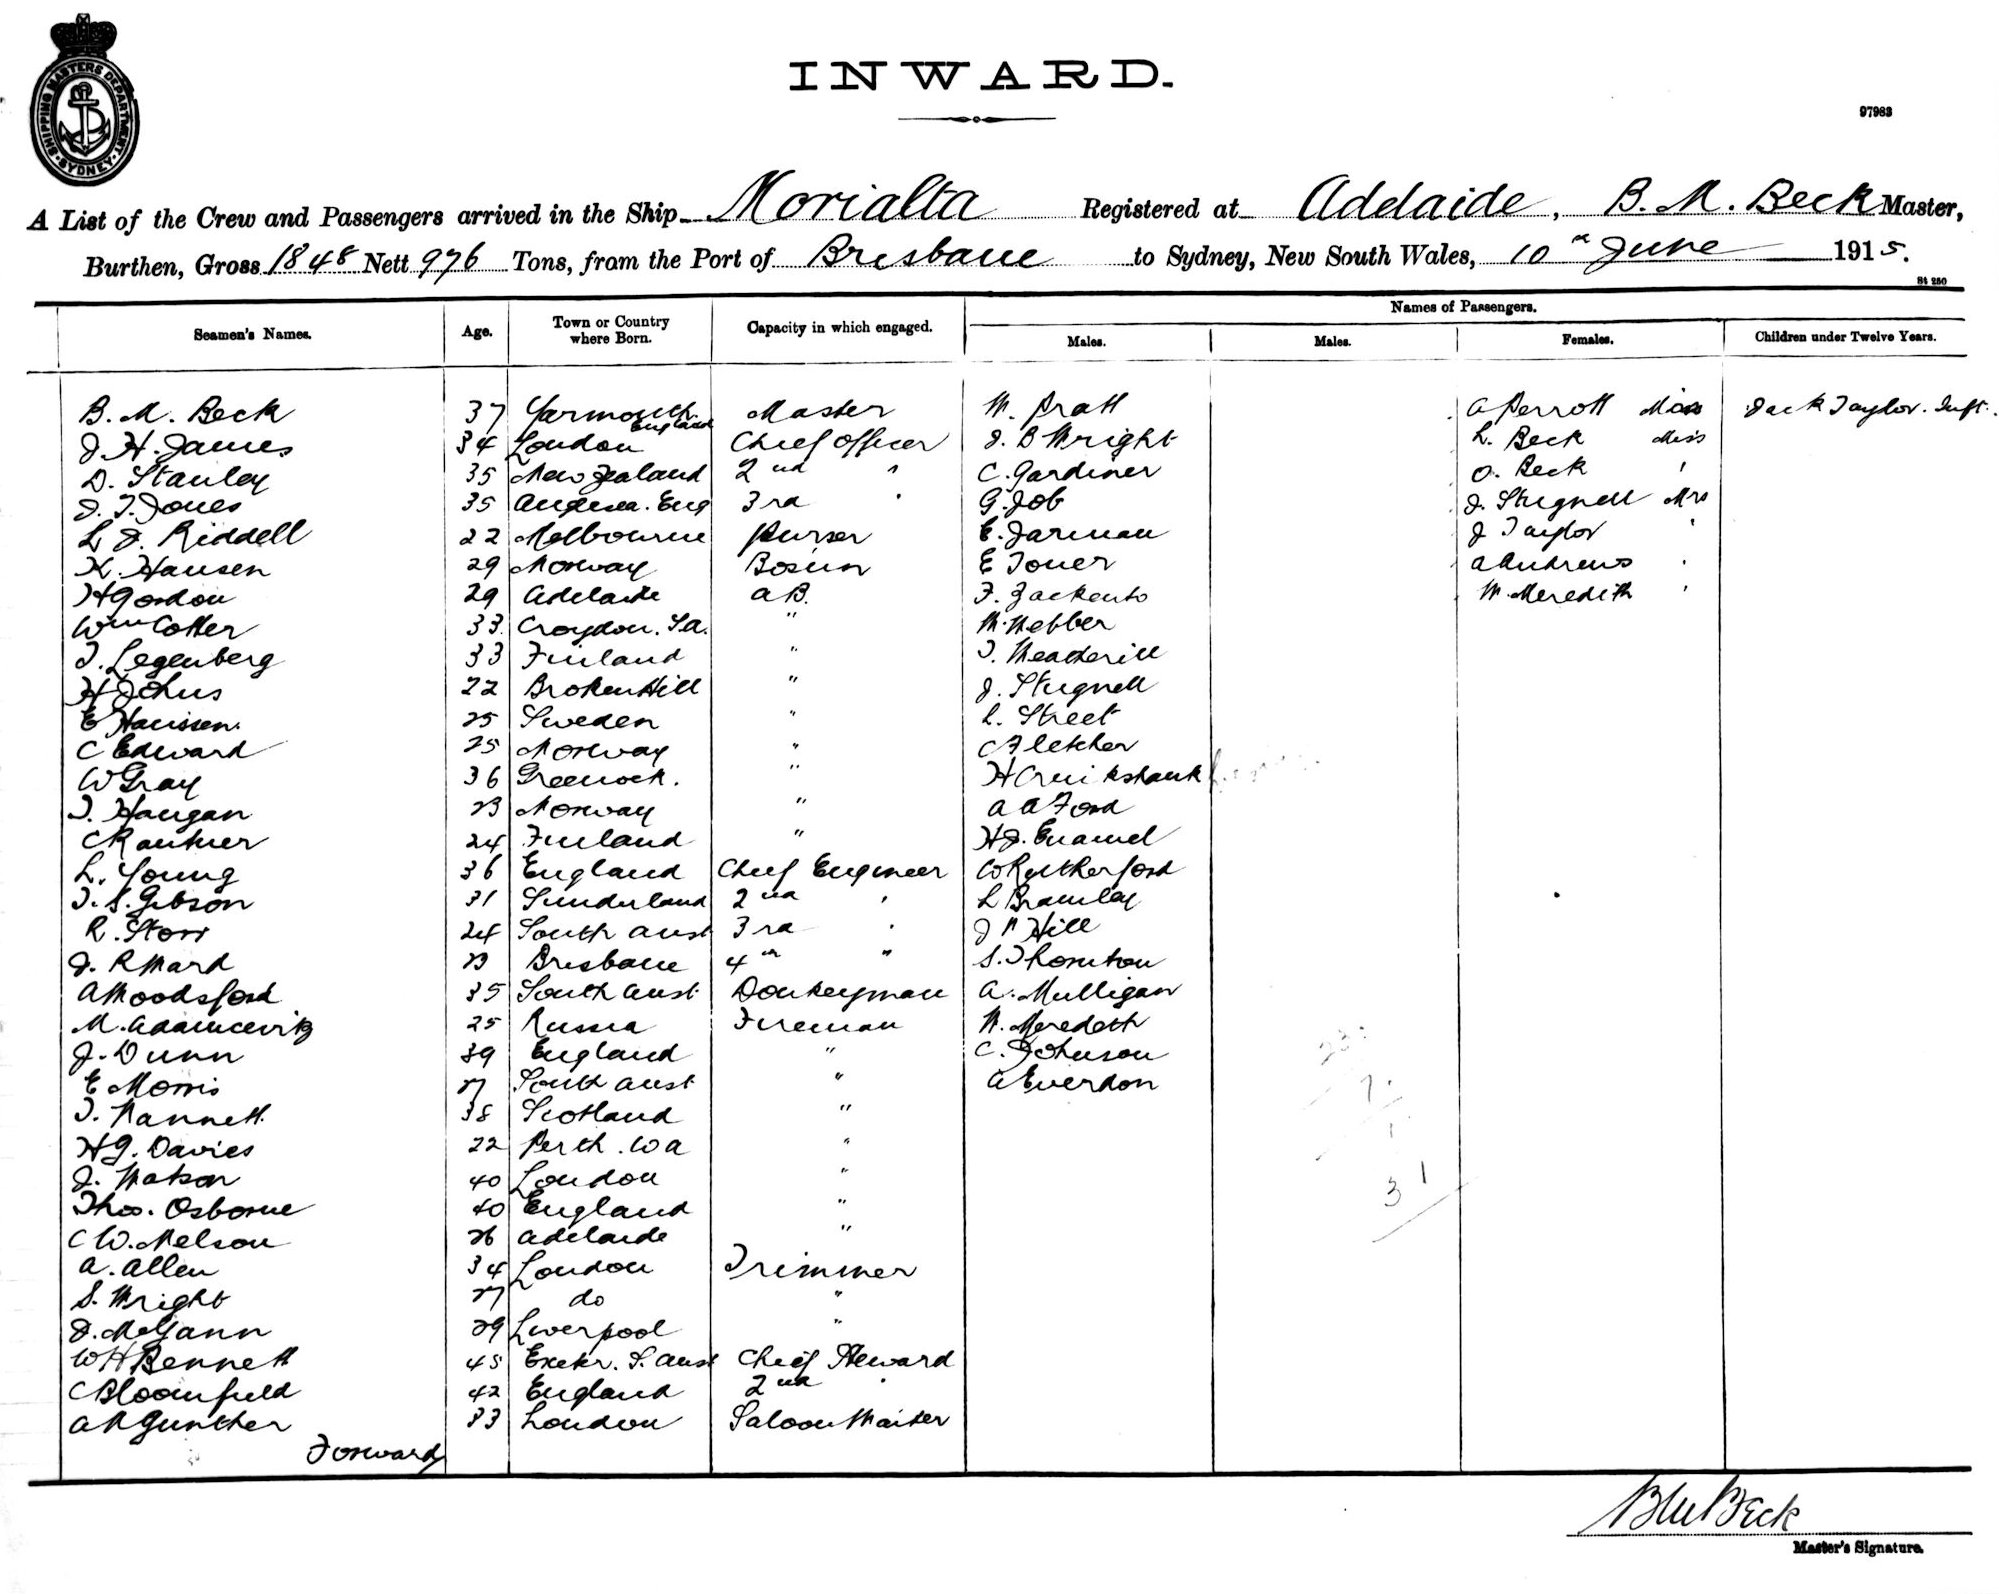 SHIPPING MASTERS DEPARTMENT. SYDNEY.
INWARD.
97983
A List of the Crew and Passengers arrived in the Ship Morialta Registered at Adelaide, B. M. Beck Master,
Burthen, Gross 1848 Nett 976 Tons, from the Port of Brisbane to Sydney, New South Wales, 10th June 1915.
St 250
Names of Passengers.
Seamen's Names. Age. Town or Country where Born. Capacity in which engaged. Males. Males. Females. Children under Twelve Years.
B. M. Beck 37 Yarmouth. England Master W. Pratt A Perrott Miss Jack Taylor. Inft.
J. H. James 34 London Chief Officer J. B Wright L. Beck Miss
D. Stanley 35 New Zealand 2nd " C. Gardiner O. Beck '
J. T. Jones 35 Anglesea. Eng 3rd " G. Job J. Stugnell Mrs
L J. Riddell 22 Melbourne Purser E. Jarman J Taylor '
K. Hansen 29 Norway Bosun E Toner A Andrews '
H Gordon 29 Adelaide AB. F. W. Meredith '
Wm Cotter 33 Croydon. S.A. " W. Webber
T. Legenberg 33 Finland " T. Weatherill
H Johns 22 Broken Hill " J. Stugnell
E Hanssen. 25 Sweden " L. Street
C Edward 25 Norway " C Fletcher
W Gray 36 Greenock. " H Cruikshank
T. Haugan 23 Norway " A A Ford
C 24 Finland " H J.
L. Young 36 England Chief Engineer W Rutherford
T. S. Gibson 31 Sunderland 2nd ' L Bramley
R. Storr 24 South Aust 3rd ' J W Hill
J. R Ward 23 Brisbane 4th " S. Thornton
A Woodsford 35 South Aust Donkeyman A. Mulligan
M. Adamcevitz 25 Russia Fireman W. Meredith
J. Dunn 39 England " C. Johnson
E Morris 27 South Aust " A Everdon
T. Nannett. 38 Scotland "
H G. Davies 22 Perth. WA "
J. Watson 40 London "
Thos. Osborne 40 England "
C W. Nelson 26 Adelaide "
31
A. Allen 34 London Trimmer
S. Wright 27 do "
J. McGann 29 Liverpool "
W H Bennett 45 Exeter. S. Aust Chief Steward
C Bloomfield 42 England 2nd '
A R Gunther 33 London Saloon Waiter
Forward
B M Beck
Master's Signature.